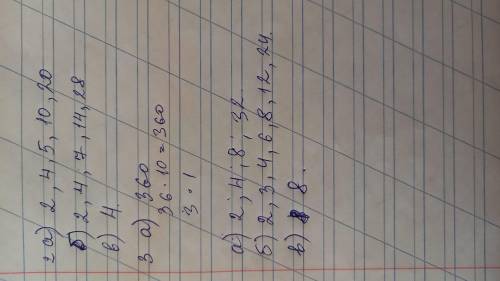 2 а) 2, 4, 5, 10, 20
б) 2, 4, 7, 14, 28
в) 4
3 а) 360
36 · 10 = 360
3 · 1
а) 2, 4, 8, 32
б) 2, 3, 4, 6, 8, 12, 24.
в) 8.